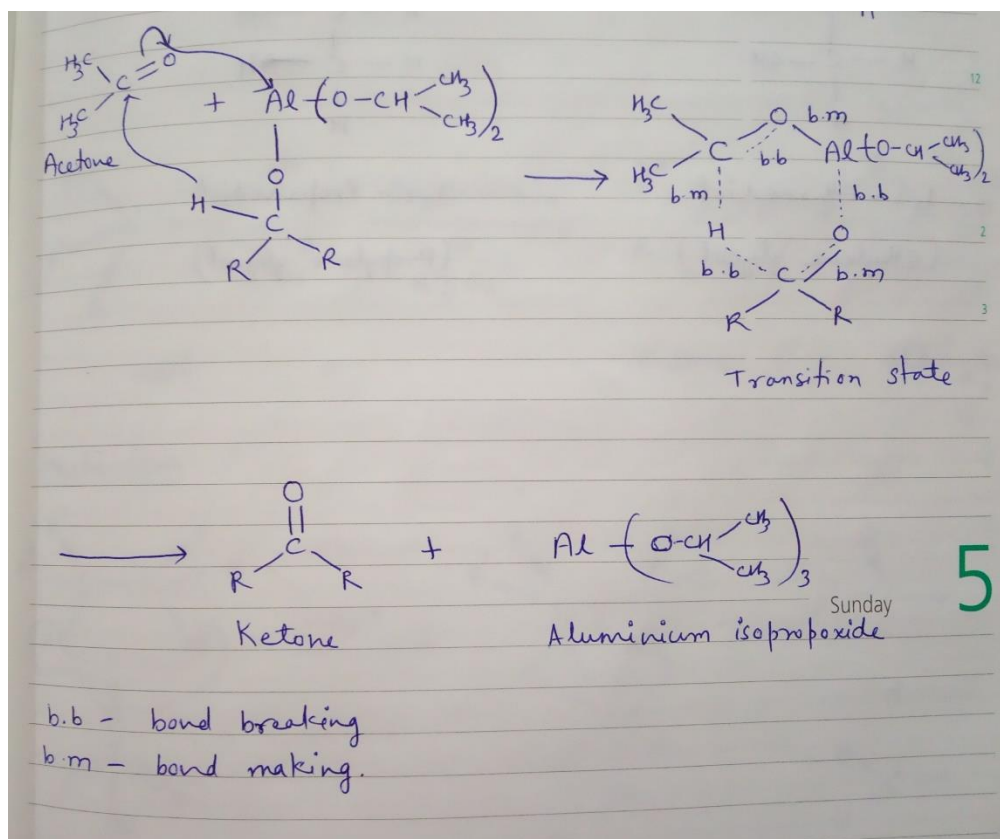 H₃C
C=O
H₃C
Acetone
+ Al-(O-CH CH₃ CH₃)₂
O
H C
R R
H₃C
O b.m
C b.b Al-(O-CH CH₃ CH₃)₂
H₃C
b.m b.b
H O
b.b C b.m
R R
Transition state
O
C
R R
+ Al-(O-CH CH₃ CH₃)₃
Ketone
Aluminium isopropoxide
Sunday
5
b.b - bond breaking
b.m - bond making.
12
2
3